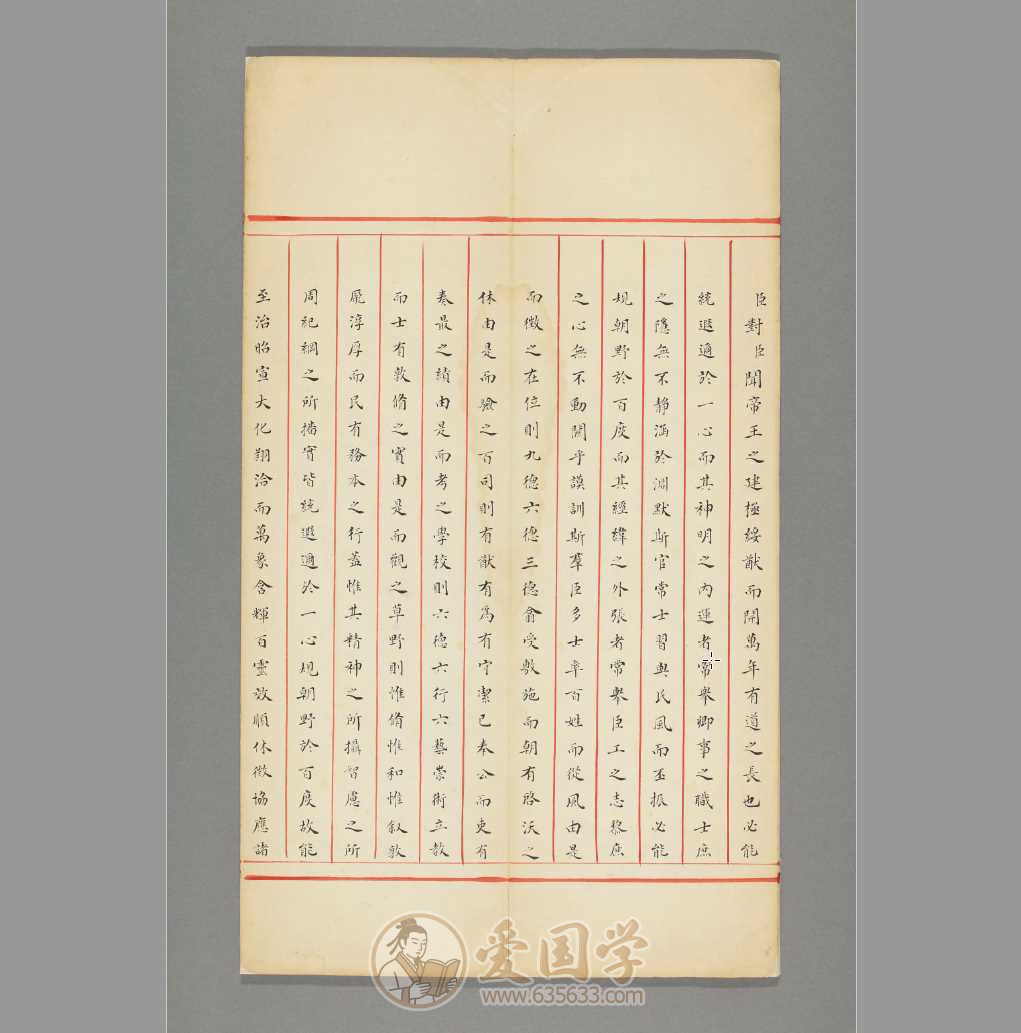 臣對臣聞帝王之建極綏猷而開萬年有道之長也必能
統遐邇於一心而其神明之內運者常舉卿事之職士庶
之隱無不靜涵於淵默斯官常士習與民風而丕振必能
規朝野於百度而其經緯之外張者常舉臣工之志黎庶
之心無不動關乎謨訓斯羣臣多士率百姓而從風由是
而徵之在位則九德六德三德翕受敷施而朝有啓沃之
休由是而驗之百司則有猷有為有守潔已奉公而吏有
奏最之績由是而考之學校則六德六行六藝崇術立教
而士有敦脩之實由是而觀之草野則惟脩惟和惟叙敦
厖淳厚而民有務本之行蓋惟其精神之所攝智慮之所
周紀綱之所播實皆統遐邇於一心規朝野於百度故能
至治昭宣大化翔洽而萬彙含輝百靈效順休徵協應諸
爱国学
www.635633.com